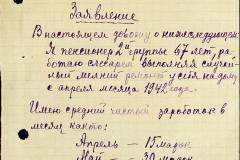 Заявление
В настоящем довожу о нижеследующем:
Я пенсионер 2й группы 67 лет, ра-
ботаю слесарем выполняя случай-
ный мелкий ремонт у себя на дому
с апреля месяца 1942 года.
Имею средний чистый заработок в
месяц как то:
Апрель — 15 марок
Май — 20 марок